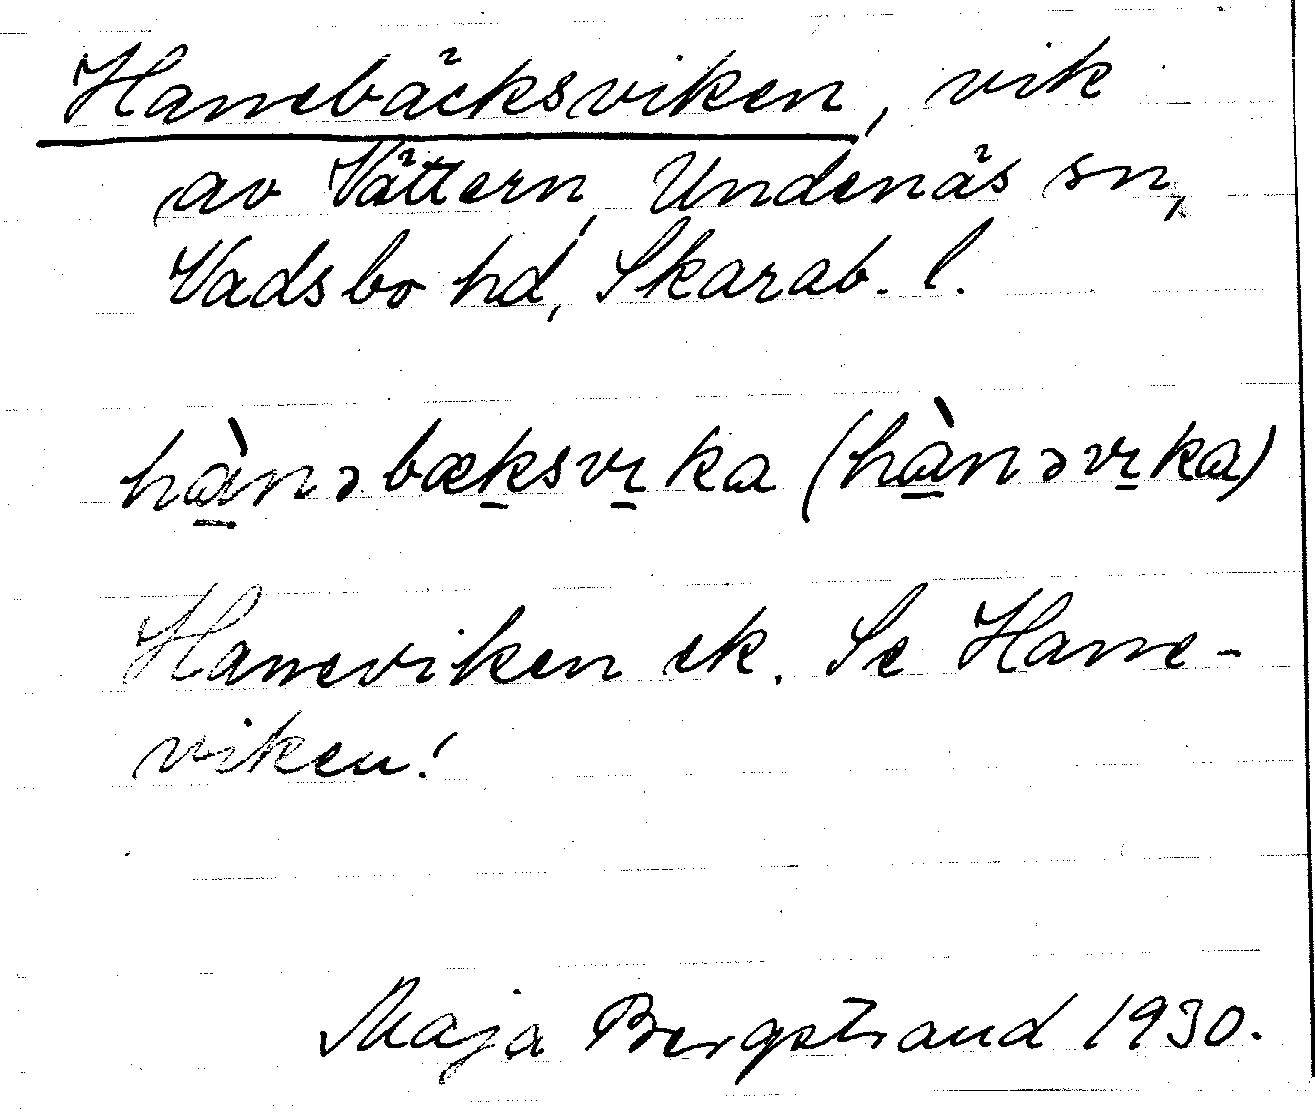 Hanebäcksviken, vik
av Vättern, Undenäs sn,
Vadsbo hd, Skarab. l.
hà̱nəbæḵsvi̱ka (hà̱nəvi̱ka)
Haneviken ek. Se Hane-
viken!
Maja Bergstrand 1930.